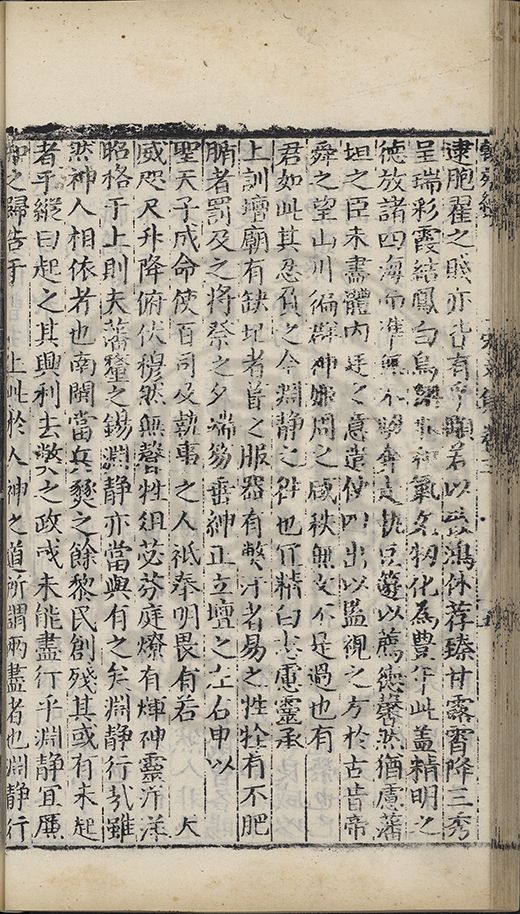 逮胞翟之賤亦皆有孚顒若以致鴻休荐臻甘露霄降三秀
呈瑞彩霞結鳳白烏 氣 物化為豊年此盖精明之
德放諸四海而準無不駿奔走執豆籩以薦德馨然猶慮藩
垣之臣未盡體內廷之意造使四出以監視之方於古昔帝
舜之望山川徧羣神姬周之咸秩無文不是過也有
君如此其忍負之今淵靜之徃也冝精白志慮靈承
上訓壇廟有缺圮者葺之服器有弊汙者易之牲牷有不肥
腯者罰及之將祭之夕端笏垂紳正立壇之左右申以
聖天子成命使百司及執事之人祗奉明畏有若 天
威咫尺升降俯伏穆然無聲牲俎苾芬庭燎有煇神靈洋洋
昭格于上則夫蕃釐之錫淵靜亦當與有之矣淵靜行哉雖
然神人相依者也南閩當兵燹之餘黎民創殘其或有未起
者乎縱曰起之其興利去獘之政或未能盡行乎淵靜宜厲
之歸告于 上此於人神之道所謂兩盡者也淵靜行